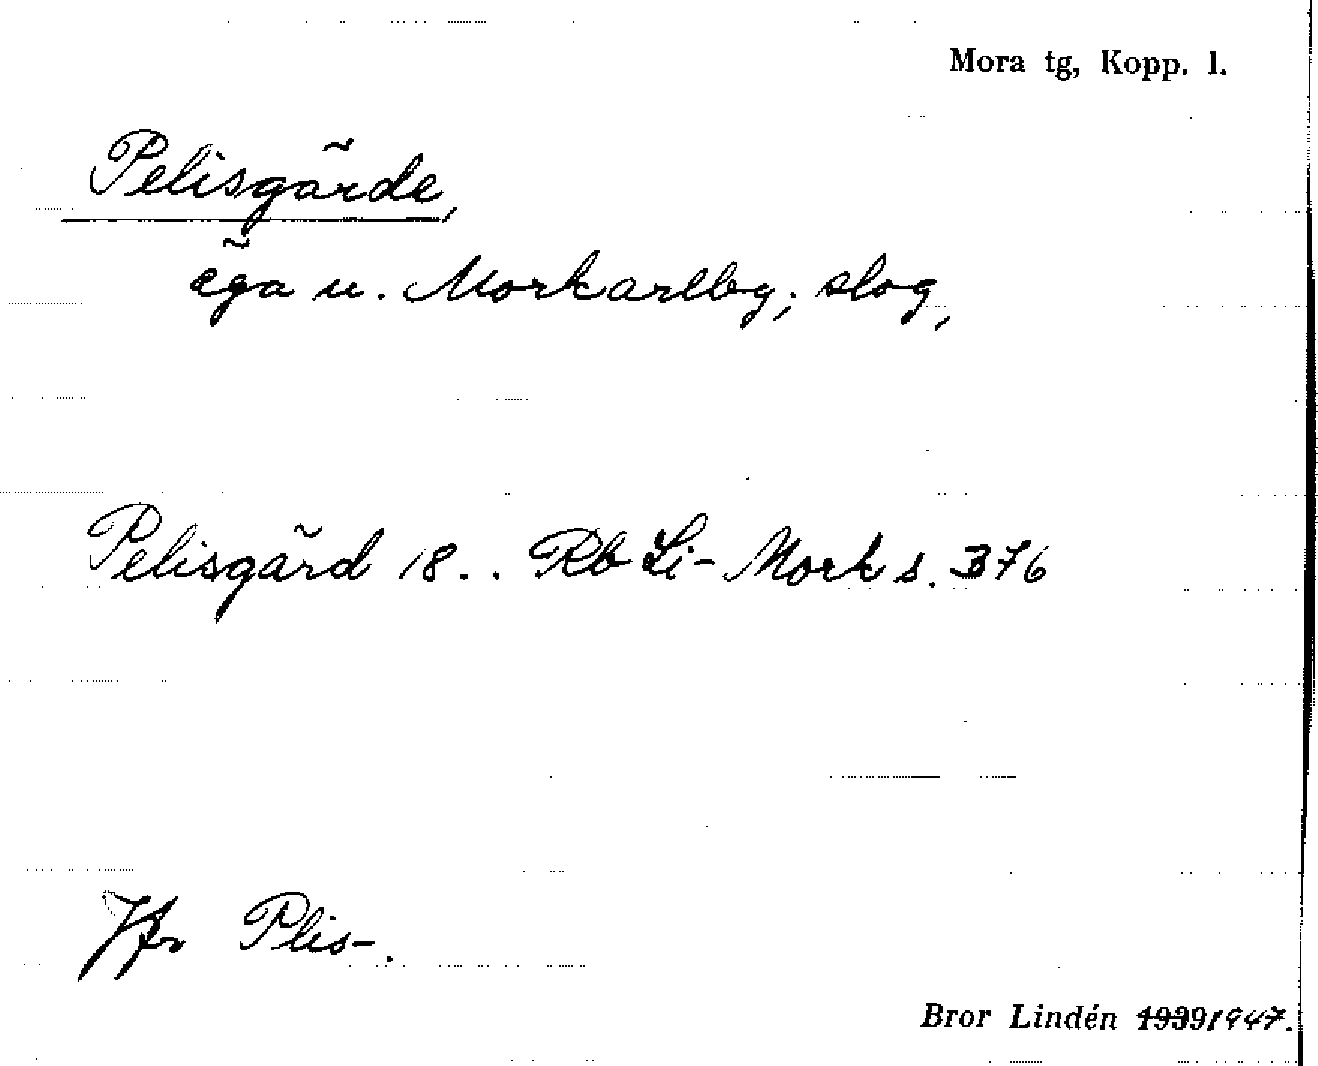 Mora tg, Kopp. l.
Pelisgärde,
äga u. Morkarlby; slog,
Pelisgärd 18.. Rb Li-Mork s. 376
Jfr Plis-.
Bror Lindén 1939 1947.